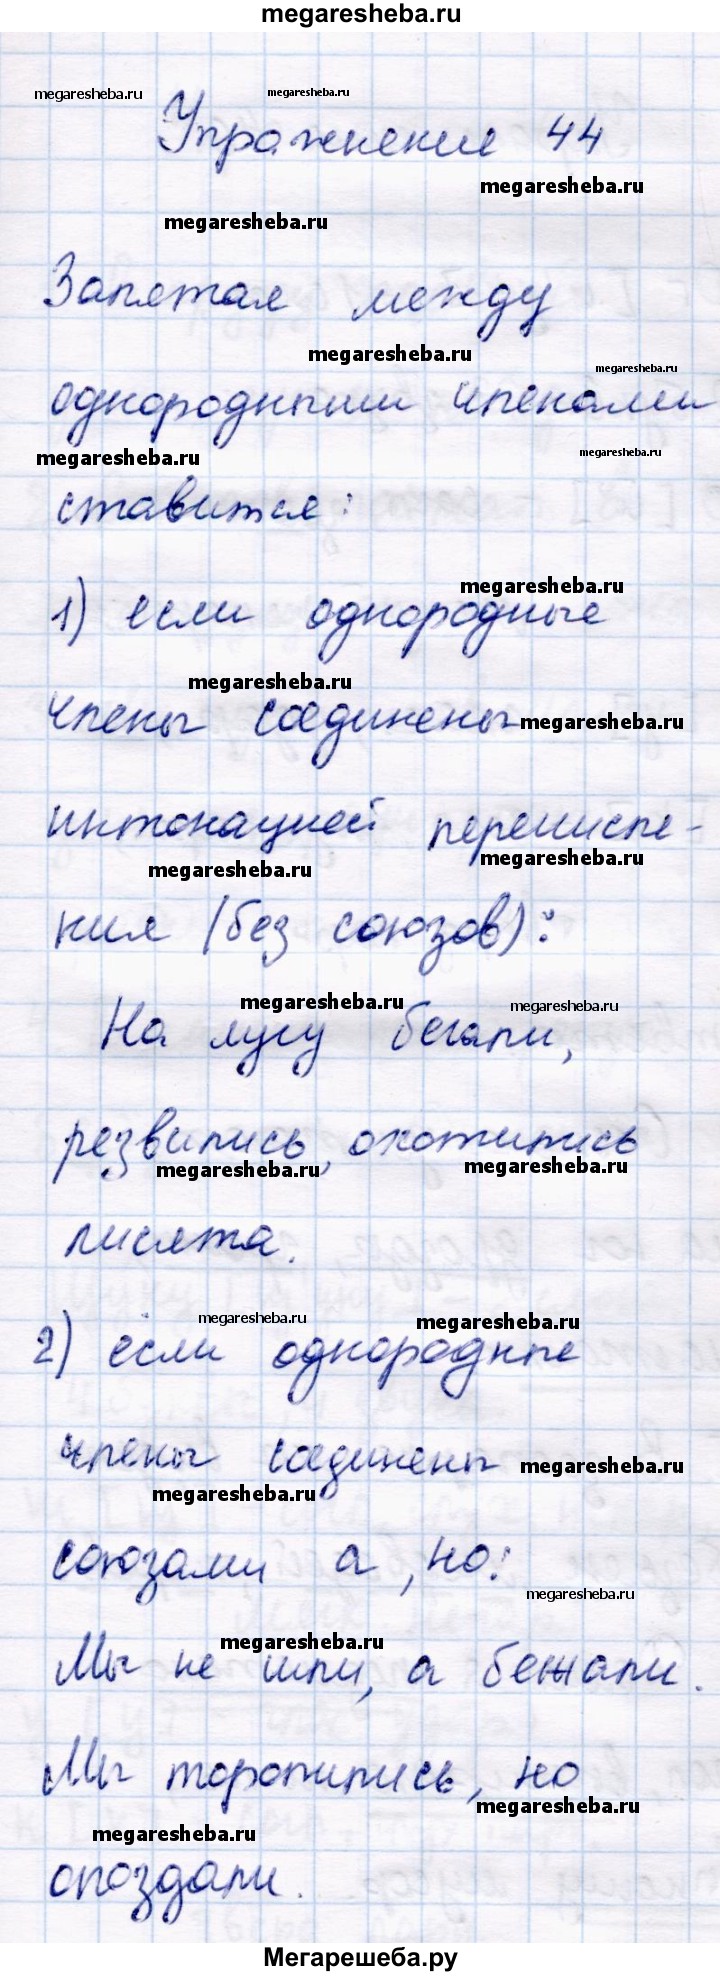 megaresheba.ru
megaresheba.ru
megaresheba.ru
Упражнение 44
megaresheba.ru
megaresheba.ru
Запятая между
megaresheba.ru
megaresheba.ru
однородными членами
megaresheba.ru
megaresheba.ru
ставится:
megaresheba.ru
1) если однородные
megaresheba.ru
члены соединены
megaresheba.ru
интонацией перечисле-
megaresheba.ru
megaresheba.ru
ния (без союзов):
megaresheba.ru
megaresheba.ru
На лугу бегали,
резвились, охотились
megaresheba.ru
megaresheba.ru
лисята.
megaresheba.ru
megaresheba.ru
2) если однородные
члены соединены
megaresheba.ru
megaresheba.ru
союзами а, но:
megaresheba.ru
megaresheba.ru
Мы не шли, а бежали.
Мы торопились, но
megaresheba.ru
megaresheba.ru
опоздали.
Мегарешеба.ру